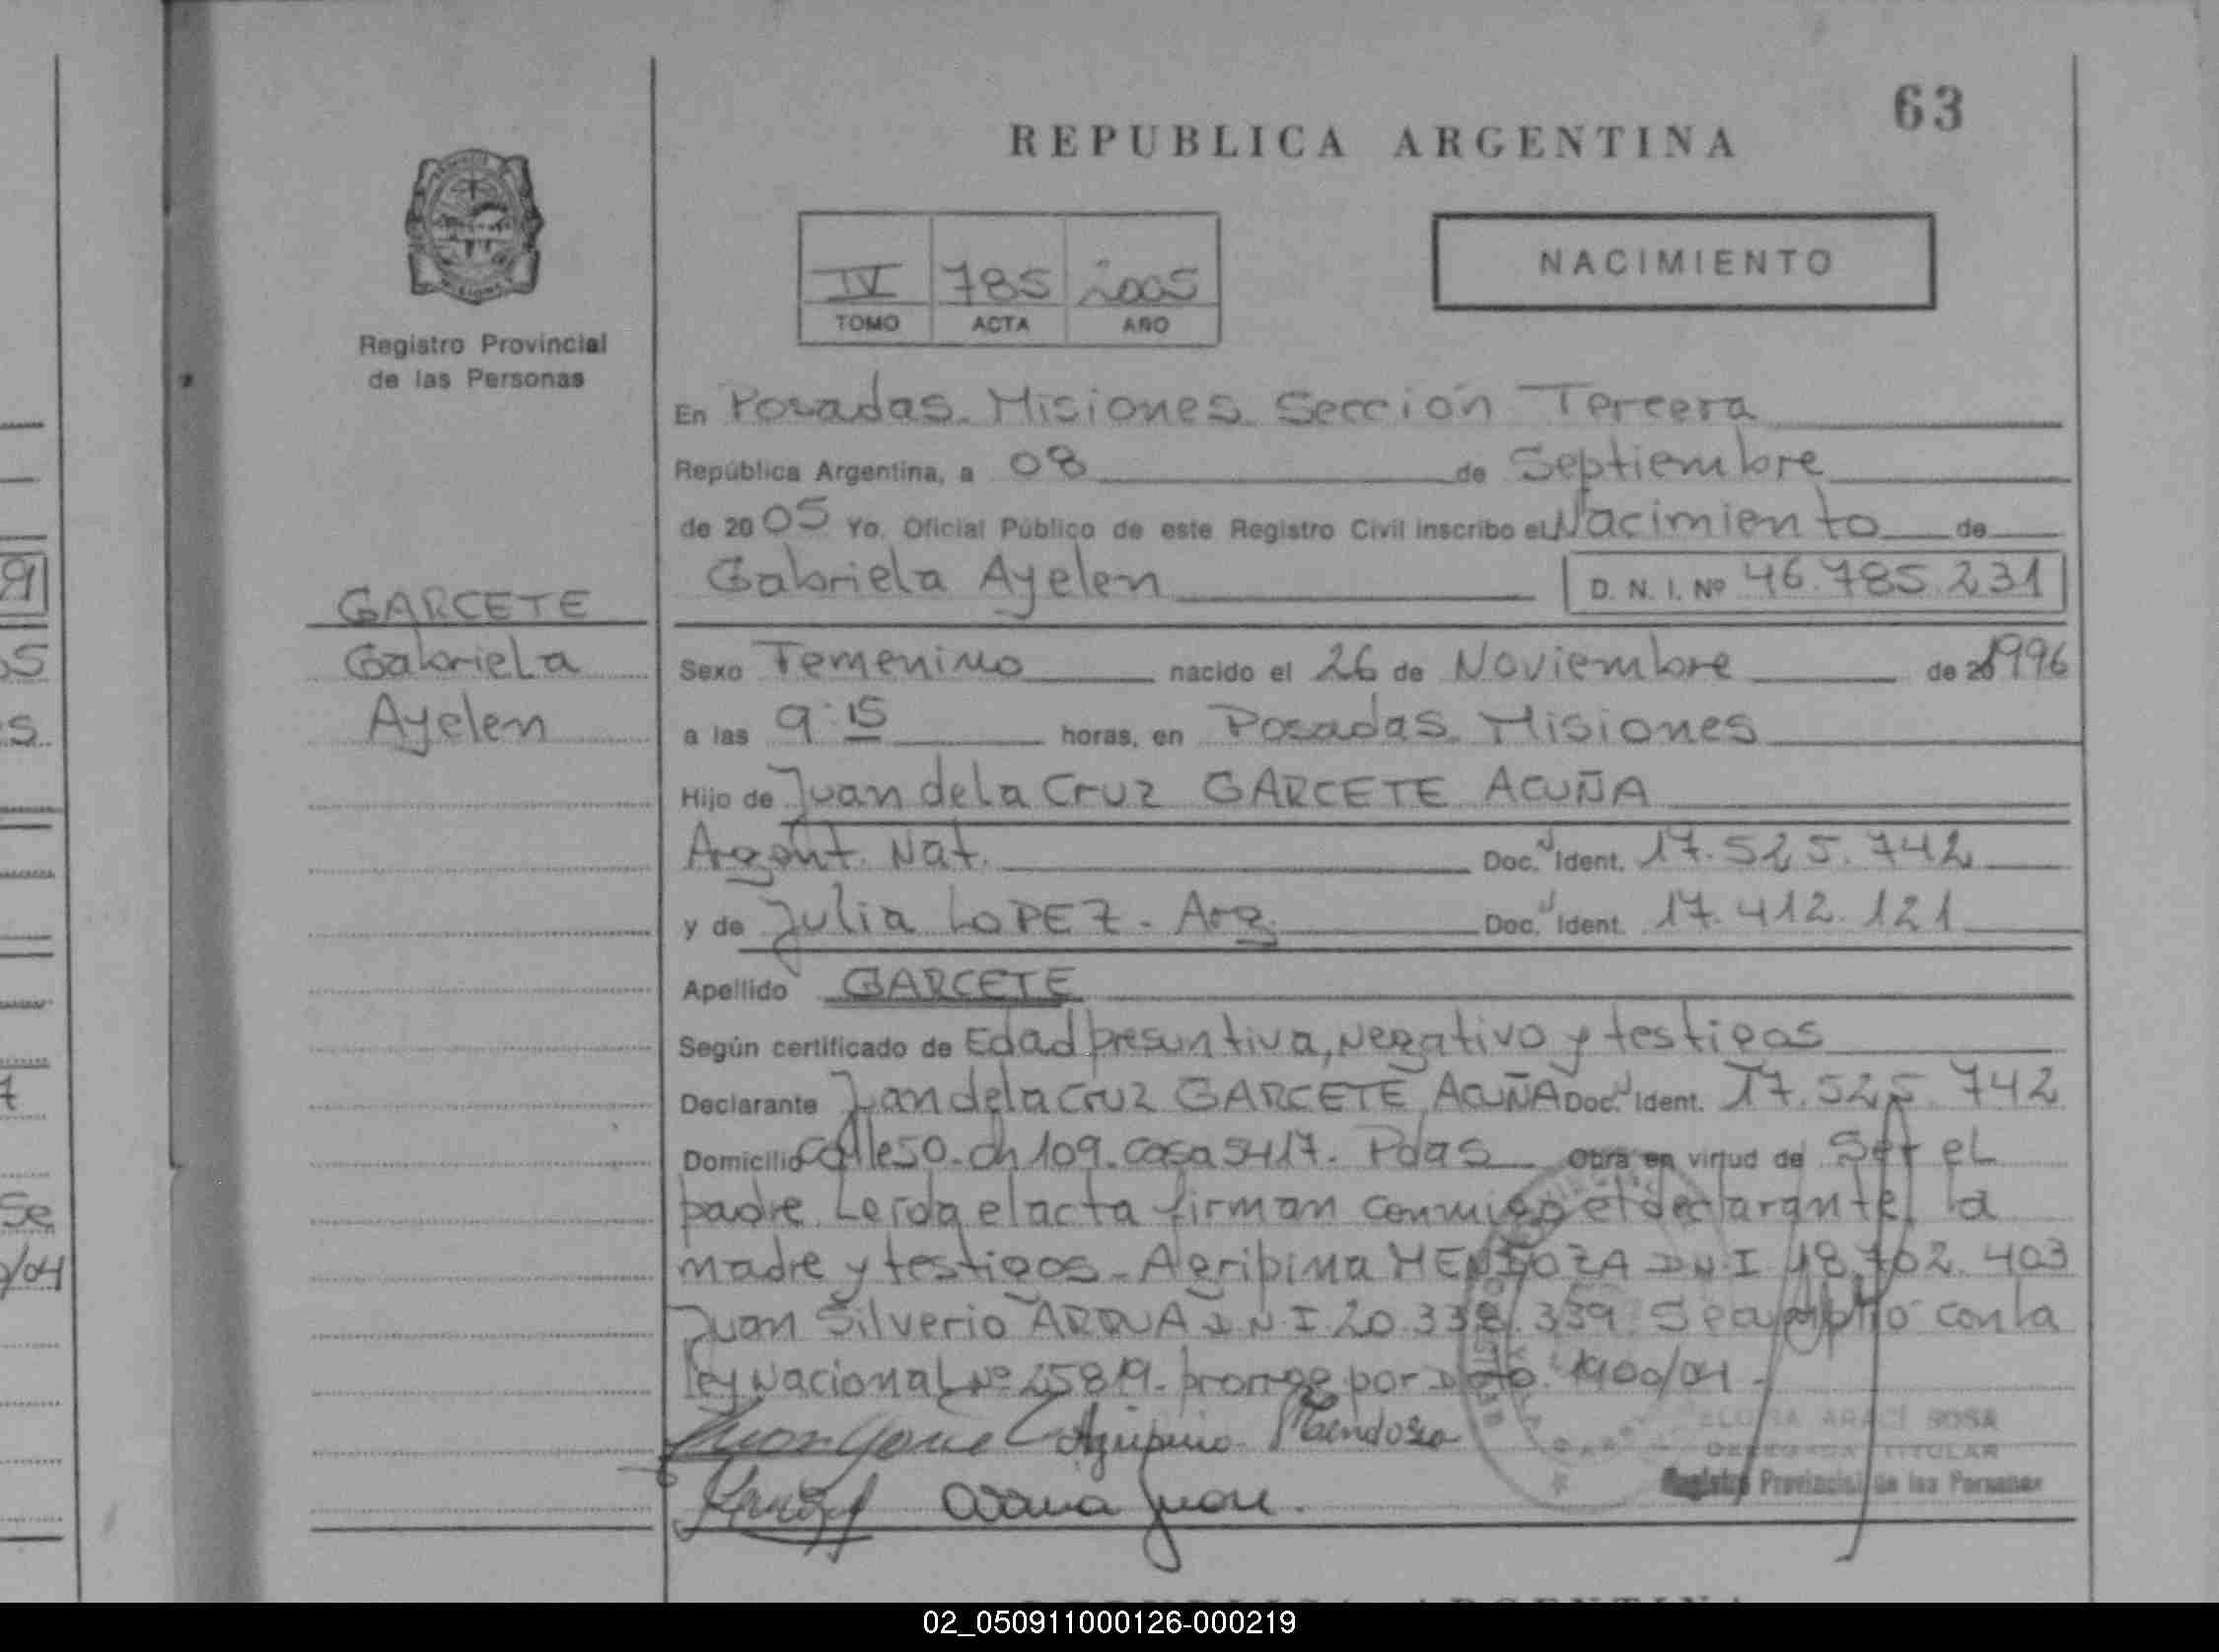 63
REPUBLICA ARGENTINA
IV 785 2005
TOMO ACTA AÑO
NACIMIENTO
Registro Provincial
de las Personas
GARCETE
Gabriela
Ayelen
En Posadas. Misiones. Sección Tercera
República Argentina, a 08 de Septiembre
de 2005 Yo, Oficial Público de este Registro Civil inscribo el Nacimiento de
Gabriela Ayelen D. N. I. Nº 46.785.231
Sexo Femenino nacido el 26 de Noviembre de 1996
a las 9:15 horas, en Posadas. Misiones
Hijo de Juan de la Cruz GARCETE ACUÑA
Argent. Nat. Doc. Ident. 17.525.742
y de Julia LOPEZ - Arg. Doc. Ident. 17.412.121
Apellido GARCETE
Según certificado de Edad presuntiva, Negativo y testigos
Declarante Juan de la Cruz GARCETE ACUÑA Doc. Ident. 17.525.742
Domicilio calle 50. ch 109. casa 5417. Pdas Obra en virtud de Ser el
padre. Leída el acta firman conmigo el declarante, la
madre y testigos - Agripina MENDOZA DNI 18.702.403
Juan Silverio ARRUA DNI 20.338.339. Se amplió con la
ley Nacional Nº 25819. prorrog por Dto. 1900/04.
Agripina Mendoza
Arrua Juan.
ELOISA ARACI SOSA
DELEGADA TITULAR
Registro Provincial de las Personas
02_050911000126-000219